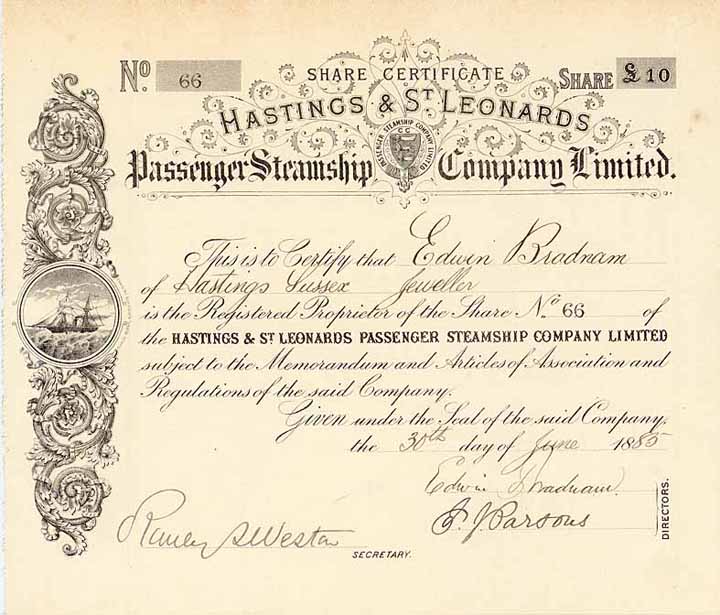 No. 66
SHARE CERTIFICATE
SHARE £10
HASTINGS & ST LEONARDS
Passenger Steamship Company Limited.
PASSENGER STEAMSHIP COMPANY LIMITED
This is to Certify that Edwin Bradnam
of Hastings Sussex Jeweller
is the Registered Proprietor of the Share No. 66 of
the HASTINGS & ST LEONARDS PASSENGER STEAMSHIP COMPANY LIMITED
subject to the Memorandum and Articles of Association and
Regulations of the said Company.
Given under the Seal of the said Company,
the 30th day of June 1885
Edwin Bradnam.
Parsons
DIRECTORS.
Weston
SECRETARY.